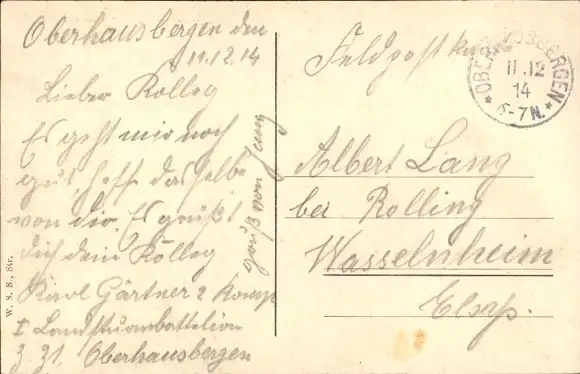 Oberhausbergen den
11.12.14
Lieber Kolleg
Es geht mir noch
gut, hoff dasselbe
von dir. Es grüßt
dich dein Kolleg
Karl Gärtner 2 Komp
I Landsturmbattelion
Z. Zt. Oberhausbergen
gruß von
Feldpostkarte
OBERHAUSBERGEN
11.12
14
6-7N.
Albert Lang
bei Rolling
Wasselnheim
Elsaß.
W. S. S., Str.